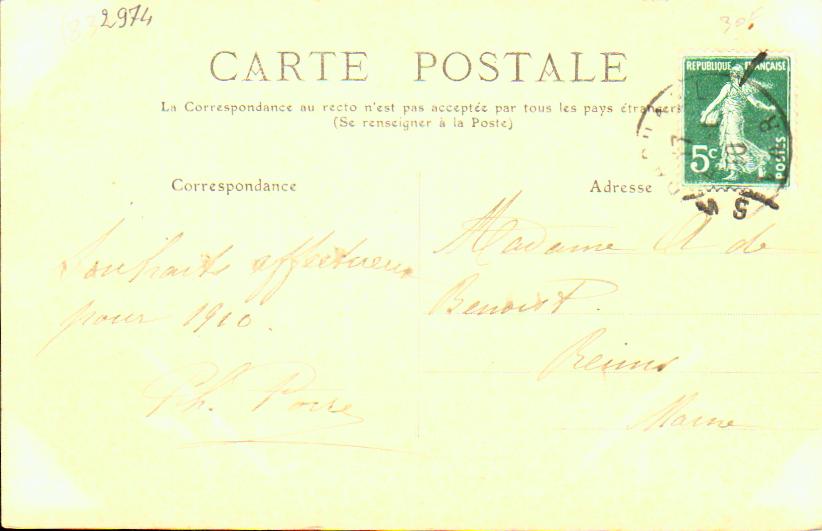 2974
CARTE POSTALE
La Correspondance au recto n'est pas acceptée par tous les pays étrangers
(Se renseigner à la Poste)
REPUBLIQUE FRANÇAISE
5c
POSTES
Correspondance
Adresse
Souhaits affectueux
pour 1910.
Ph.
Madame A de
Benoist.
Reims
Marne